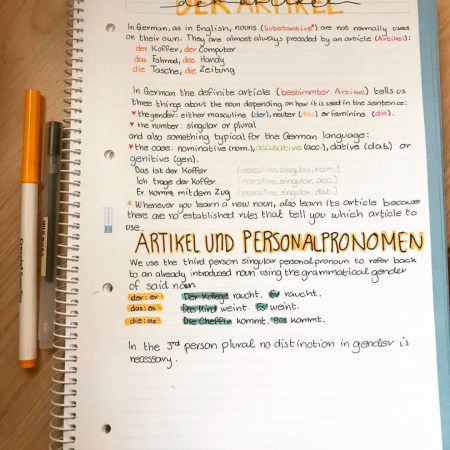 DER ARTIKEL
der artikel
In German, as in English, nouns (Substantive) are not normally used
on their own. They are almost always preceded by an article (Artikel):
der Koffer, der Computer
das Fahrrad, das Handy
die Tasche, die Zeitung
In German the definite article (bestimmter Artikel) tells us
three things about the noun depending on how it is used in the sentence:
♥ the gender: either masculine (der), neuter (das) or feminine (die).
♥ the number: singular or plural
and also something typical for the German language:
♥ the case: nominative (nom.), accusative (acc.), dative (dat) or
genitive (gen).
Das ist der Koffer (masculine, singular, nom.)
Ich trage der Koffer (masculine, singular, acc.)
Er kommt mit dem Zug (masculine, singular, dat.)
* Whenever you learn a new noun, also learn its article because
there are no established rules that tell you which article to
use.
ARTIKEL UND PERSONALPRONOMEN
We use the third person singular personal pronoun to refer back
to an already introduced noun using the grammatical gender
of said noun
der:er Der Kollege raucht. Er raucht.
das:es Das Kind weint. Es weint.
die:sie Die Chefin kommt. Sie kommt.
In the 3rd person plural no distinction in gender is
necessary.